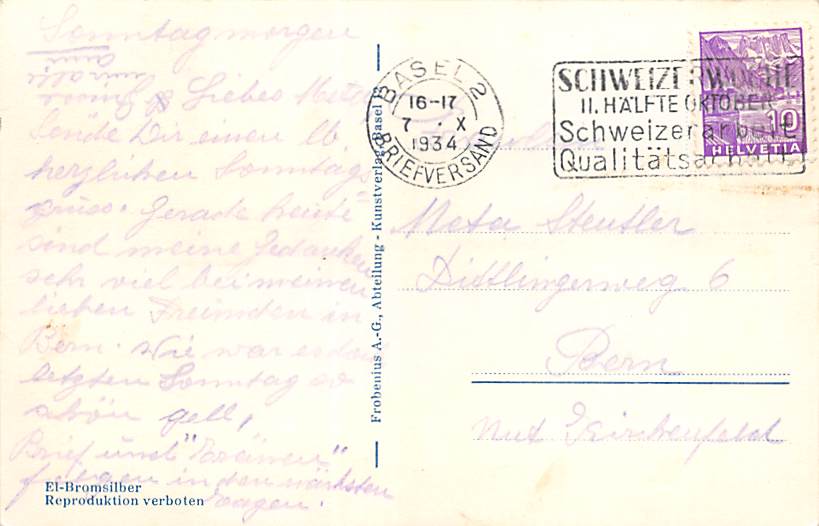 Sonntagmorgen
Liebes Meta
Sende Dir einen lb.
herzlichen Sonntags
gruss. Gerade heute
sind meine Gedanken
sehr viel bei meinen
lieben Freunden in
Bern. Wie war es doch
letzten Sonntag so
schön gell,
Brief und
folgen in den nächsten
Taagen.
El-Bromsilber
Reproduktion verboten
Frobenius A.-G., Abteilung - Kunstverlag, Basel
BASEL 2
16-17
7 · X
1934
BRIEFVERSAND
SCHWEIZERWOCHE
II. HÄLFTE OKTOBER
Schweizerarbeit
Qualitätsarbeit
10
HELVETIA
Meta Steutler
Dittlingerweg 6
Bern
Kirchenfeld